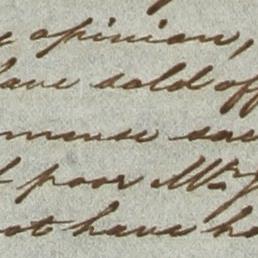 opinion,
have sold off
immense sac
poor Mr. J
not have ha